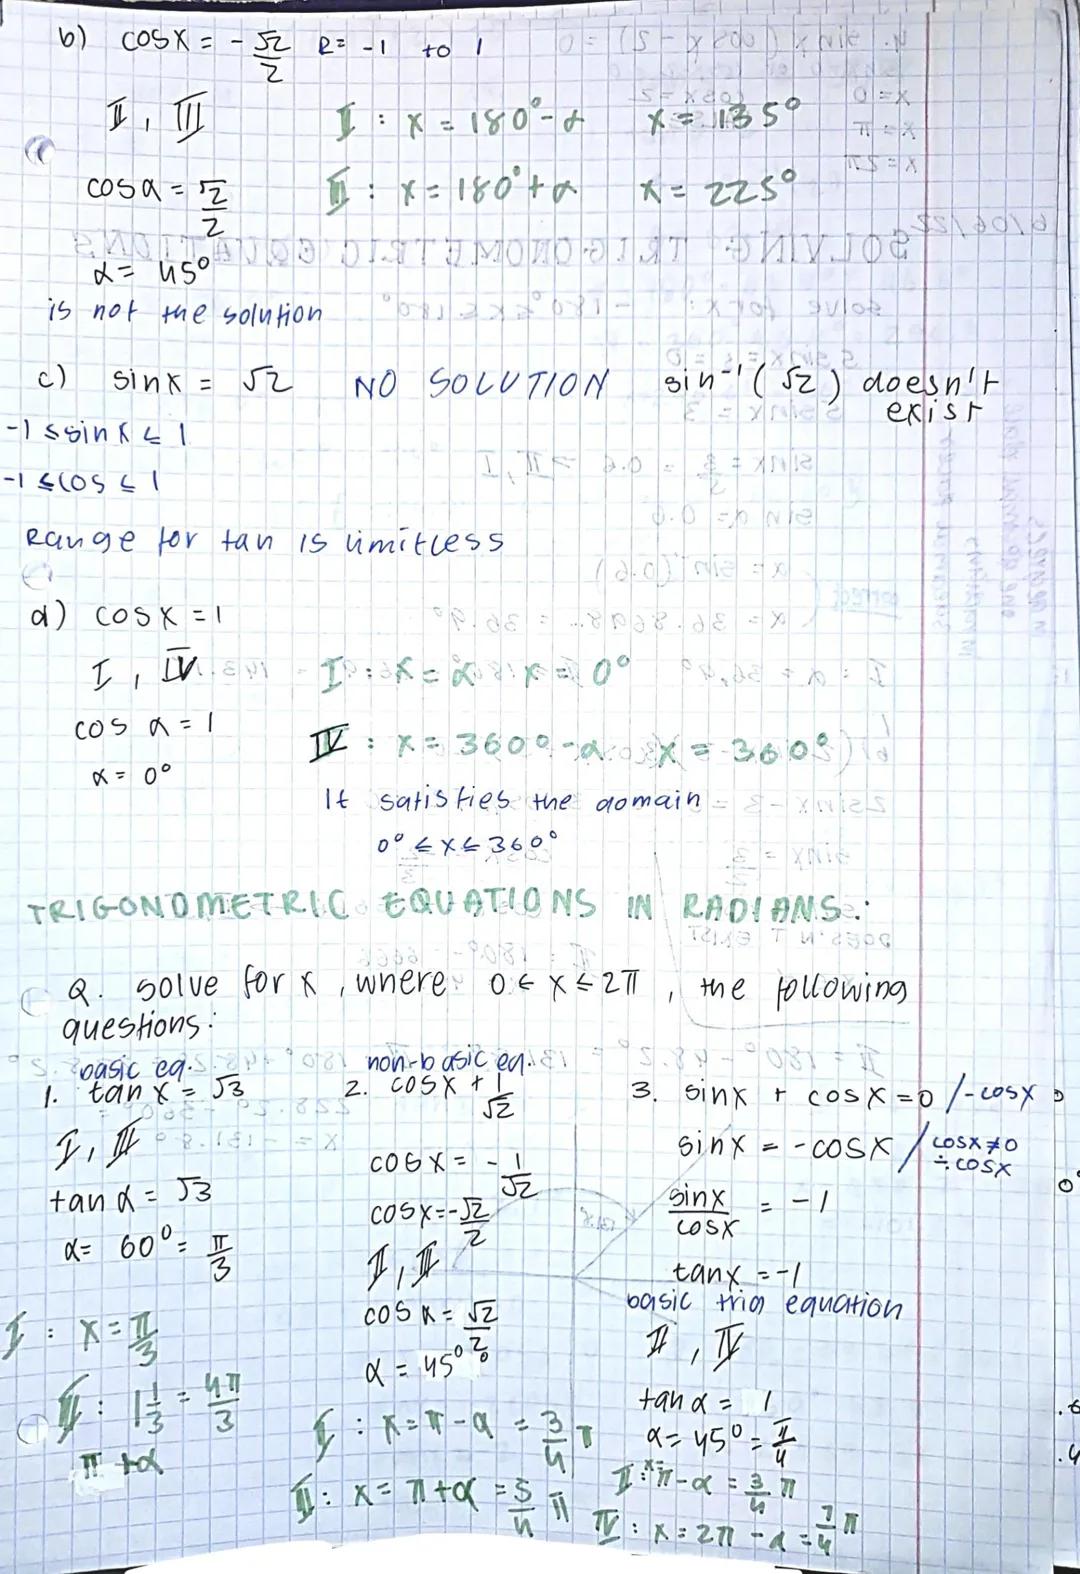 b) cosx = -√2/2 R= -1 to 1
II, III II : x = 180°-α x = 135°
cosα = √2/2 III : x = 180°+α x = 225°
α = 45°
is not the solution
c) sinx = √2 NO SOLUTION sin⁻¹(√2) doesn't exist
-1 ≤ sin x ≤ 1
-1 ≤ cos ≤ 1
Range for tan is limitless
d) cosx = 1
I, IV I : x = α x = 0°
cos α = 1
IV : x = 360°-α x = 360°
α = 0°
It satisfies the domain
0° ≤ x ≤ 360°
TRIGONOMETRIC EQUATIONS IN RADIANS:
Q. solve for x, where 0 ≤ x ≤ 2π, the following
questions:
basic eq.
1. tan x = √3
I, III
tan α = √3
α = 60° = π/3
I : x = π/3
III : 1 1/3 = 4π/3
π + α
non-basic eq.
2. cosx + 1/√2
cosx = -1/√2
cosx = -√2/2
II, III
cos α = √2/2
α = 45°
II : x = π - α = 3/4 π
III : x = π + α = 5/4 π
3. sinx + cosx = 0 /-cosx
sinx = -cosx / cosx≠0 ÷cosx
sinx/cosx = -1
tanx = -1
basic trig equation
II, IV
tan α = 1
α = 45° = π/4
II : x = π - α = 3/4 π
IV : x = 2π - α = 7/4 π